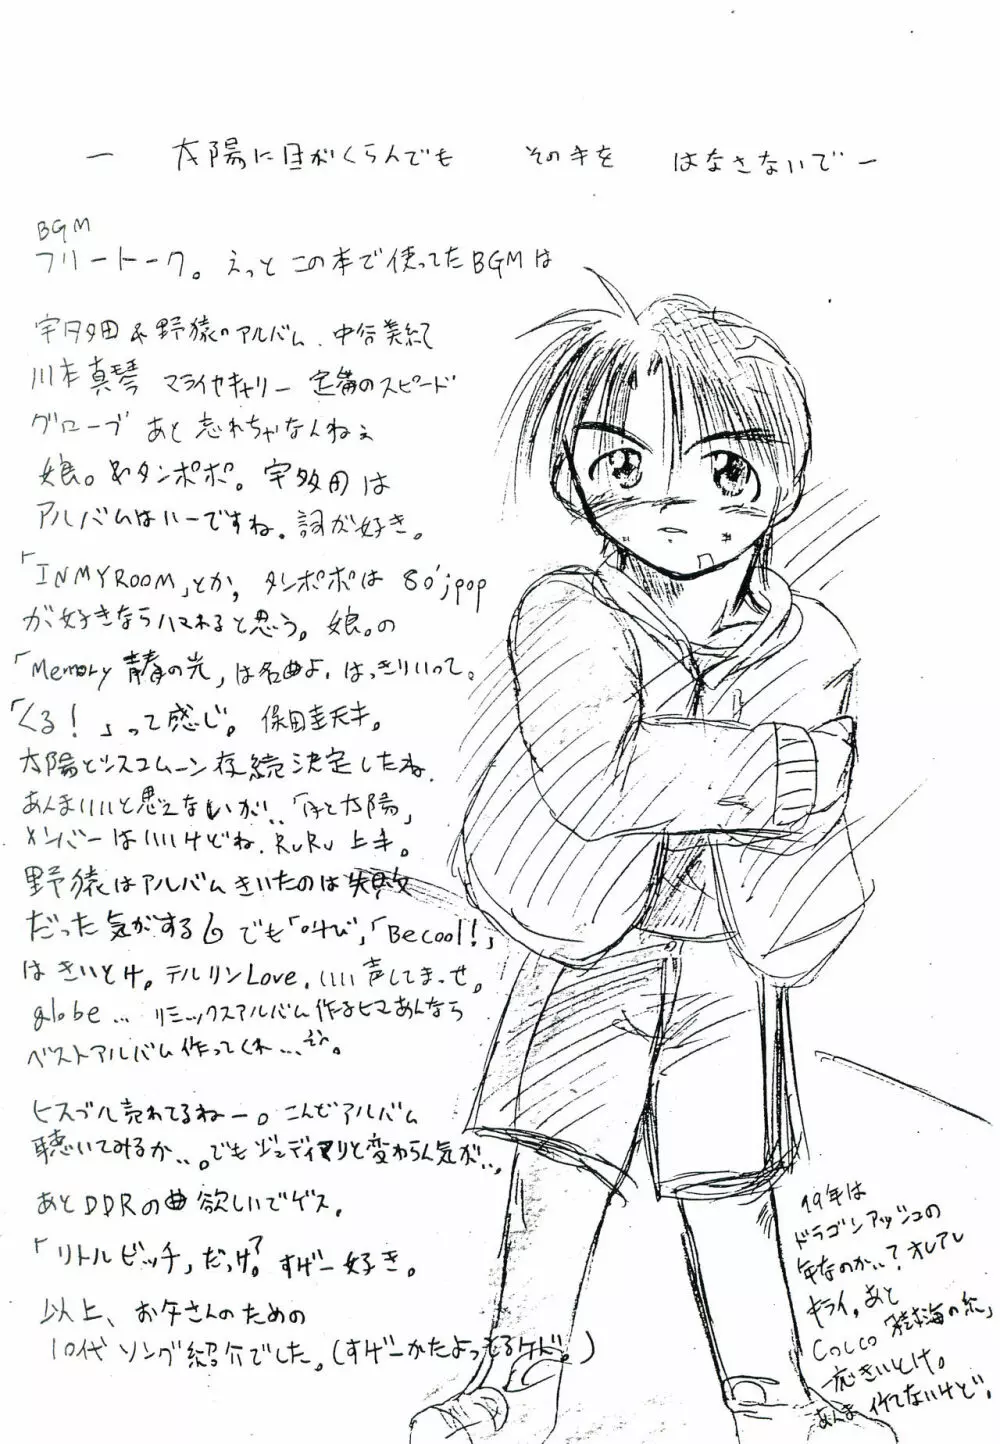 ー 太陽に目がくらんでも その手を はなさないでー
BGM
フリートーク。えっと この本で使ってたBGMは
宇多田&野猿のアルバム、中谷美紀
川本真琴 マライヤキャリー 定番のスピード
グローブ あと 忘れちゃなんねぇ
娘。&タンポポ。宇多田は
アルバムはいーですね。詞が好き。
「IN MY ROOM」とか、タンポポは 80'jpop
が好きならハマれると思う。娘。の
「Memory 青春の光」は名曲よ。はっきりいって。
「くる!」って感じ。保田圭天才。
太陽とシスコムーン存続決定したね。
あんまいいと思えないが‥「月と太陽」
メンバーはいいけどね、RuRu 上手。
野猿はアルバムきいたのは失敗
だった気がする でも「叫び」,「Be cool!」
は きいとけ。テルリンLove。いい声してまっせ。
globe… リミックスアルバム作るヒマあんなら
ベストアルバム作ってくれ…。
ヒスブル売れてるねー。こんどアルバム
聴いてみるか‥。でも ジュディマリと変わらん気が‥。
あとDDRの曲欲しいでゲス。
「リトルビッチ」だっけ?すげー好き。
以上、お父さんのための
10代ソング紹介でした。(すげーかたよってるけど。)
99年は
ドラゴンアッシュの
年なのか‥?オレアレ
キライ。あと
Cocco「樹海の糸」
一応きいとけ。
あんま 似てないけど。